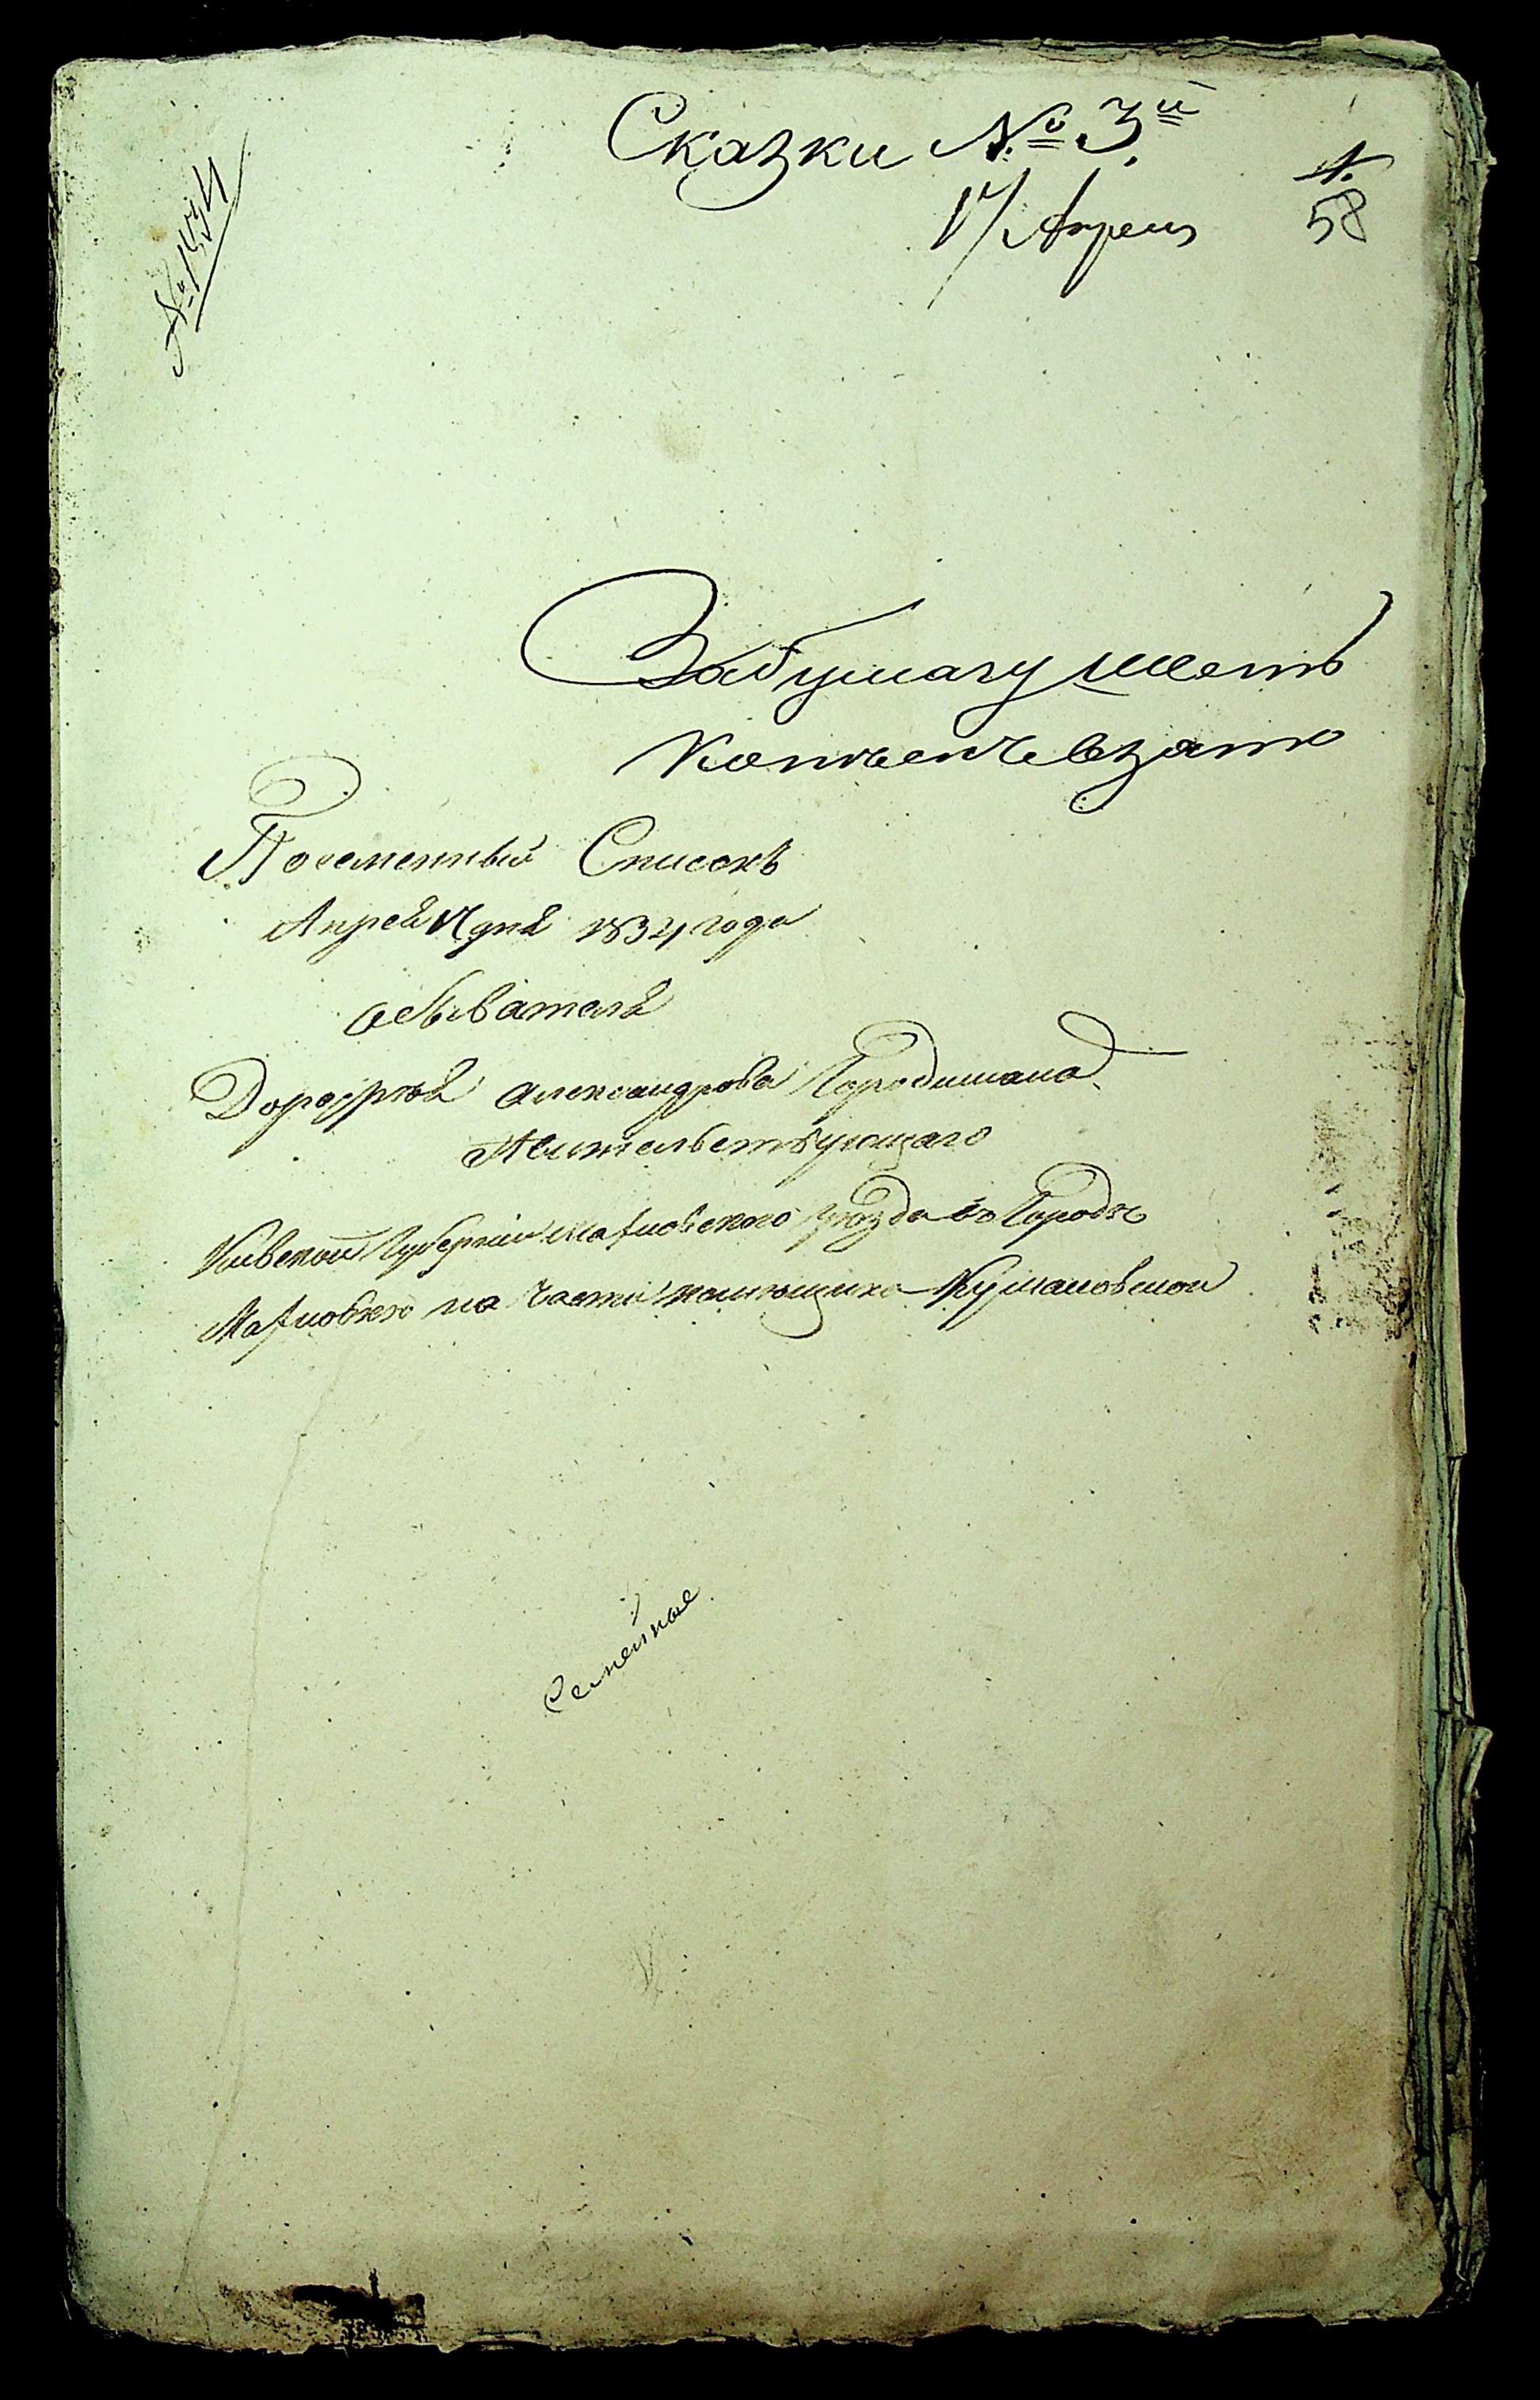 Сказки №. 3й
17 Апреля
1.
58
№ 1834
За бумагу шесть
копѣекъ взято
Посемейный Списокъ
Апреля 17 дня 1834 года
обывателя
Дорофѣя Александрова Городишана
Жительствующаго
Киевской Губернии Махновского уезда въ Городѣ
Махновкѣ на части помещика Кумановской
Семейные